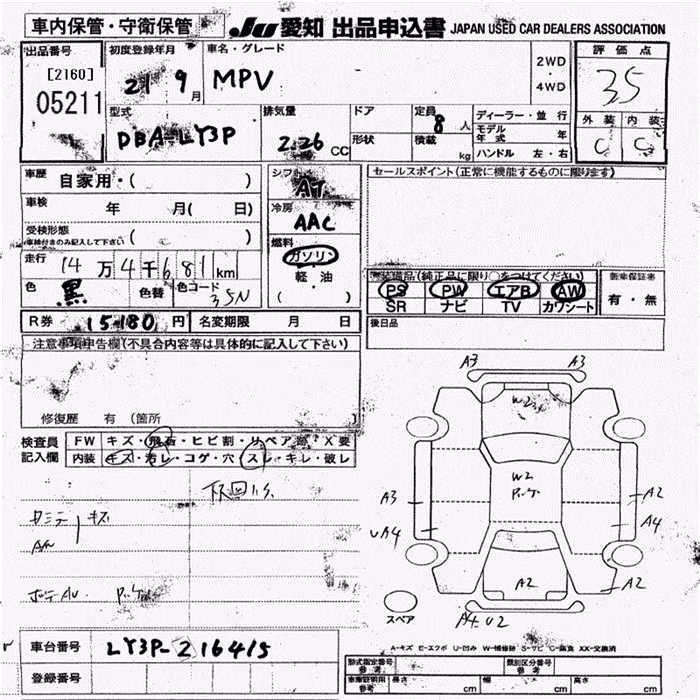 車内保管・守衛保管
JU 愛知 出品申込書 JAPAN USED CAR DEALERS ASSOCIATION
出品番号
[2160]
05211
初度登録年月
21 9月
車名・グレード
MPV
2WD
・
4WD
評価点
35
外装 内装
C C
型式
DBA-LY3P
排気量
2.26 CC
ドア
形状
定員
8人
積載
kg
ディーラー・並行
モデル年式 年
ハンドル 左・右
車歴
自家用・( )
車検
年 月( 日)
受検形態
(車検付きのみ記入して下さい) ( )
走行
14万4千681km
色
黒
色替
色コード
35N
シフト
AT
冷房
AAC
燃料
ガソリン
・
軽・油
( )
セールスポイント(正常に機能するものに限ります)
装備品(純正品に限り○をつけてください)
PS PW エアB AW
SR ナビ TV カワシート
新車保証書
有・無
R券 15180円 名変期限 月 日
後日品
注意事項申告欄(不具合内容等は具体的に記入して下さい)
修復歴 有 (箇所 )
検査員
記入欄
FW キズ・飛石・ヒビ割・リペア跡・X要
内装 キズ・汚レ・コゲ・穴・スレ・キレ・破レ
下回りS
キズ
A3 A3
W2
W2
A3
UA4
A2
A4
A2
A2
A4 U2
スペア
A-キズ E-エクボ U-凹み W-補修跡 S-サビ C-腐食 XX-交換済
車台番号 LY3P-216415
登録番号
形式指定番号
参考
類別区分番号
参考
車庫証明用
参考
長さ cm 幅 cm 高さ cm